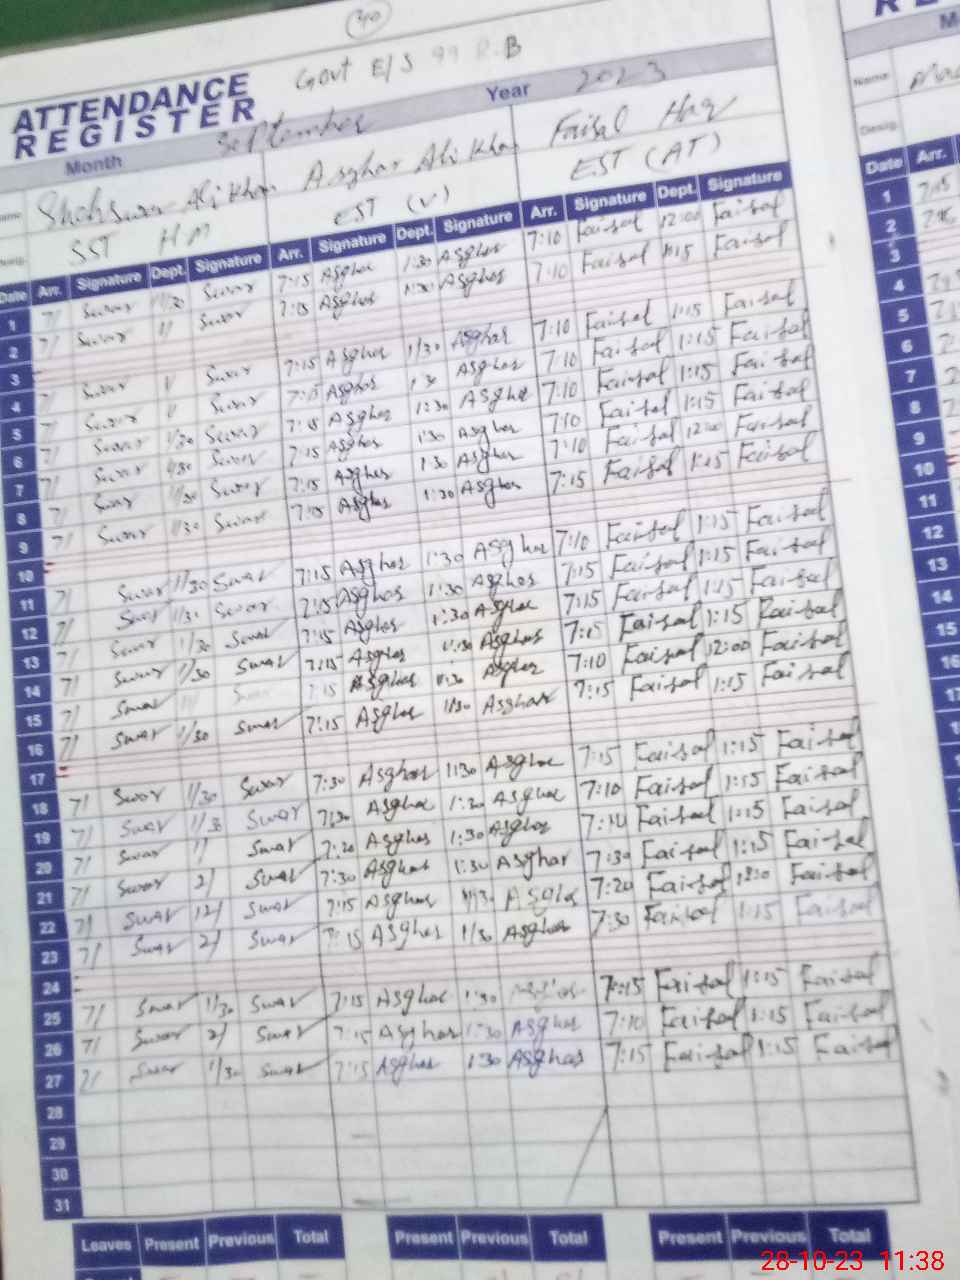 30
Govt E/S 99 R.B
ATTENDANCE
REGISTER
Month September Year 2023
Shehswar Ali Khan Asghar Ali Khan Faisal Haq
SST HM EST (V) EST (AT)
Date Arr. Signature Dept. Signature Arr. Signature Dept. Signature Arr. Signature Dept. Signature
1 7/ Swar 1/30 Swar 7:15 Asghar 1:30 Asghar 7:10 Faisal 12:00 Faisal
2 7/ Swar 1/ Swar 7:15 Asghar 1:30 Asghar 7:10 Faisal 1:15 Faisal
3
4 7/ Swar 1/ Swar 7:15 Asghar 1/30 Asghar 7:10 Faisal 1:15 Faisal
5 7/ Swar 1/ Swar 7:15 Asghar 1:30 Asghar 7:10 Faisal 1:15 Faisal
6 7/ Swar 1/30 Swar 7:15 Asghar 1:30 Asghar 7:10 Faisal 1:15 Faisal
7 7/ Swar 1/30 Swar 7:15 Asghar 1:30 Asghar 7:10 Faisal 1:15 Faisal
8 7/ Swar 1/30 Swar 7:15 Asghar 1:30 Asghar 7:10 Faisal 12:00 Faisal
9 7/ Swar 1/30 Swar 7:15 Asghar 1:30 Asghar 7:15 Faisal 1:15 Faisal
10
11 7/ Swar 1/30 Swar 7:15 Asghar 1:30 Asghar 7:10 Faisal 1:15 Faisal
12 7/ Swar 1/30 Swar 7:15 Asghar 1:30 Asghar 7:15 Faisal 1:15 Faisal
13 7/ Swar 1/30 Swar 7:15 Asghar 1:30 Asghar 7:15 Faisal 1:15 Faisal
14 7/ Swar 1/30 Swar 7:15 Asghar 1:30 Asghar 7:15 Faisal 1:15 Faisal
15 7/ Swar 7:15 Asghar 1:30 Asghar 7:10 Faisal 12:00 Faisal
16 7/ Swar 1/30 Swar 7:15 Asghar 1:30 Asghar 7:15 Faisal 1:15 Faisal
17
18 7/ Swar 1/30 Swar 7:30 Asghar 1:30 Asghar 7:15 Faisal 1:15 Faisal
19 7/ Swar 1/30 Swar 7:30 Asghar 1:30 Asghar 7:10 Faisal 1:15 Faisal
20 7/ Swar 1/ Swar 7:20 Asghar 1:30 Asghar 7:10 Faisal 1:15 Faisal
21 7/ Swar 2/ Swar 7:30 Asghar 1:30 Asghar 7:30 Faisal 1:15 Faisal
22 7/ Swar 12/ Swar 7:15 Asghar Asghar 7:20 Faisal Faisal
23 7/ Swar 2/ Swar 7:15 Asghar 1/30 Asghar 7:30 Faisal 1:15 Faisal
24
25 7/ Swar 1/30 Swar 7:15 Asghar 1:30 Asghar 7:15 Faisal 1:15 Faisal
26 7/ Swar 2/ Swar 7:15 Asghar 1:30 Asghar 7:10 Faisal 1:15 Faisal
27 7/ Swar 1/30 Swar 7:15 Asghar 1:30 Asghar 7:15 Faisal 1:15 Faisal
28
29
30
31
Leaves Present Previous Total Present Previous Total Present Previous Total
Name
Desig.
Date Arr.
1 7:15
2
3
4
5
6
7
8
9
10
11
12
13
14
15
16
17
28-10-23 11:38